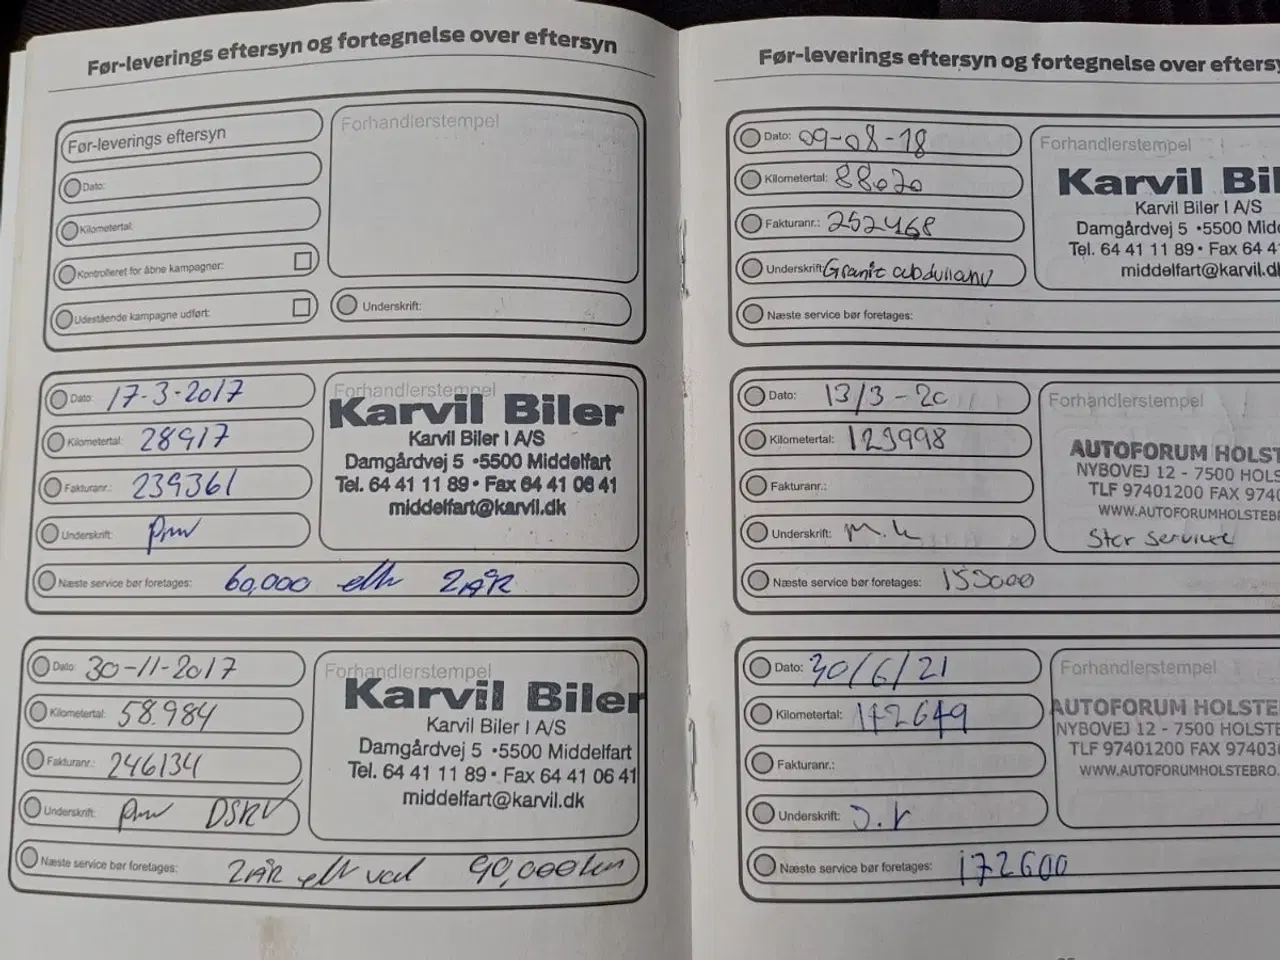 Før-leverings eftersyn og fortegnelse over eftersyn
Før-leverings eftersyn
Dato:
Kilometertal:
Kontrolleret for åbne kampagner:
Udestående kampagne udført:
Forhandlerstempel
Underskrift:
Dato: 17-3-2017
Kilometertal: 28917
Fakturanr.: 239361
Underskrift:
Forhandlerstempel
Karvil Biler
Karvil Biler I A/S
Damgårdvej 5 •5500 Middelfart
Tel. 64 41 11 89 • Fax 64 41 06 41
middelfart@karvil.dk
Næste service bør foretages: 60,000 eller 2 ÅR
Dato: 30-11-2017
Kilometertal: 58.984
Fakturanr.: 246134
Underskrift: DSRV
Forhandlerstempel
Karvil Biler
Karvil Biler I A/S
Damgårdvej 5 •5500 Middelfart
Tel. 64 41 11 89 • Fax 64 41 06 41
middelfart@karvil.dk
Næste service bør foretages: 2 ÅR eller ved 90,000 km
Før-leverings eftersyn og fortegnelse over eftersy
Dato: 09-08-18
Kilometertal: 88020
Fakturanr.: 252468
Underskrift: Granit
Forhandlerstempel
Karvil Bil
Karvil Biler I A/S
Damgårdvej 5 •5500 Mid
Tel. 64 41 11 89 • Fax 64 4
middelfart@karvil.d
Næste service bør foretages:
Dato: 13/3-20
Kilometertal: 123998
Fakturanr.:
Underskrift: M.L
Forhandlerstempel
AUTOFORUM HOLST
NYBOVEJ 12 - 7500 HOLS
TLF 97401200 FAX 9740
WWW.AUTOFORUMHOLSTEBR
Stor Service
Næste service bør foretages: 153000
Dato: 30/6/21
Kilometertal: 142649
Fakturanr.:
Underskrift:
Forhandlerstempel
AUTOFORUM HOLSTE
NYBOVEJ 12 - 7500 HOLS
TLF 97401200 FAX 97403
WWW.AUTOFORUMHOLSTEBRO.
Næste service bør foretages: 172600